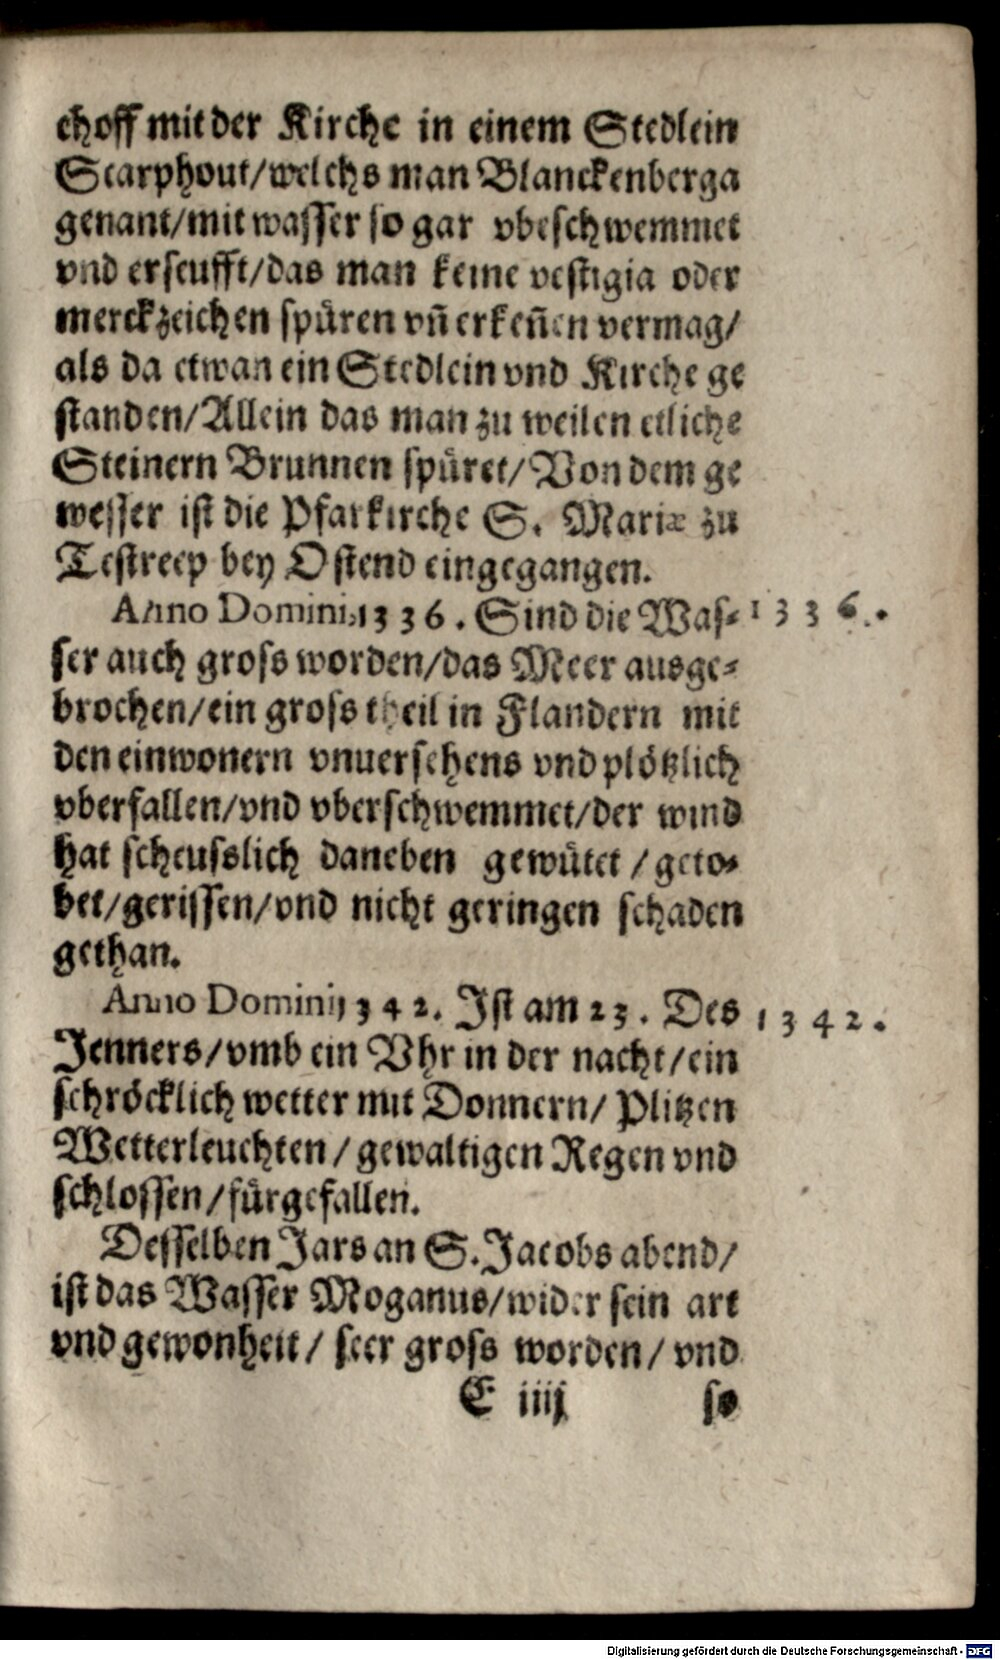 choff mit der Kirche in einem Stedlein
Scarphout/welchs man Blanckenberga
genant/mit wasser so gar vbeschwemmet
vnd erseufft/das man keine vestigia oder
merckzeichen spüren vñ erkeñen vermag/
als da etwan ein Stedlein vnd Kirche ge
standen/Allein das man zu weilen etliche
Steinern Brunnen spüret/Von dem ge
wesser ist die Pfarkirche S. Mariæ zu
Testreep bey Ostend eingegangen.
Anno Domini, 1336. Sind die Was⸗ 1336.
ser auch gross worden/das Meer ausge⸗
brochen/ein gross theil in Flandern mit
den einwonern vnuersehens vnd plötzlich
vberfallen/vnd vberschwemmet/der wind
hat scheusslich daneben gewütet/geto⸗
bet/gerissen/vnd nicht geringen schaden
gethan.
Anno Domini, 1342. Ist am 23. Des 1342.
Jenners/vmb ein Vhr in der nacht/ein
schröcklich wetter mit Donnern/Plitzen
Wetterleuchten/gewaltigen Regen vnd
schlossen/fürgefallen.
Desselben Jars an S. Jacobs abend/
ist das Wasser Moganus/wider sein art
vnd gewonheit/seer gross worden/vnd
E iiij so
Digitalisierung gefördert durch die Deutsche Forschungsgemeinschaft - DFG